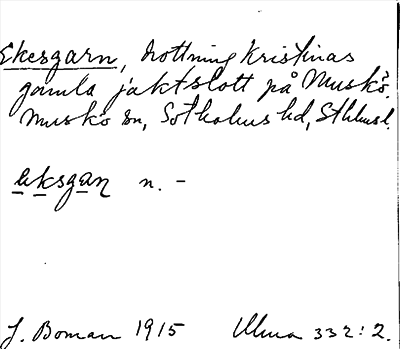 Ekesgarn, drottning Kristinas
gamla jaktslott på Muskö.
Muskö sn, Sotholms hd, Sthlms l.
eksgan n. -
J. Boman 1915 Ulma 332:2.